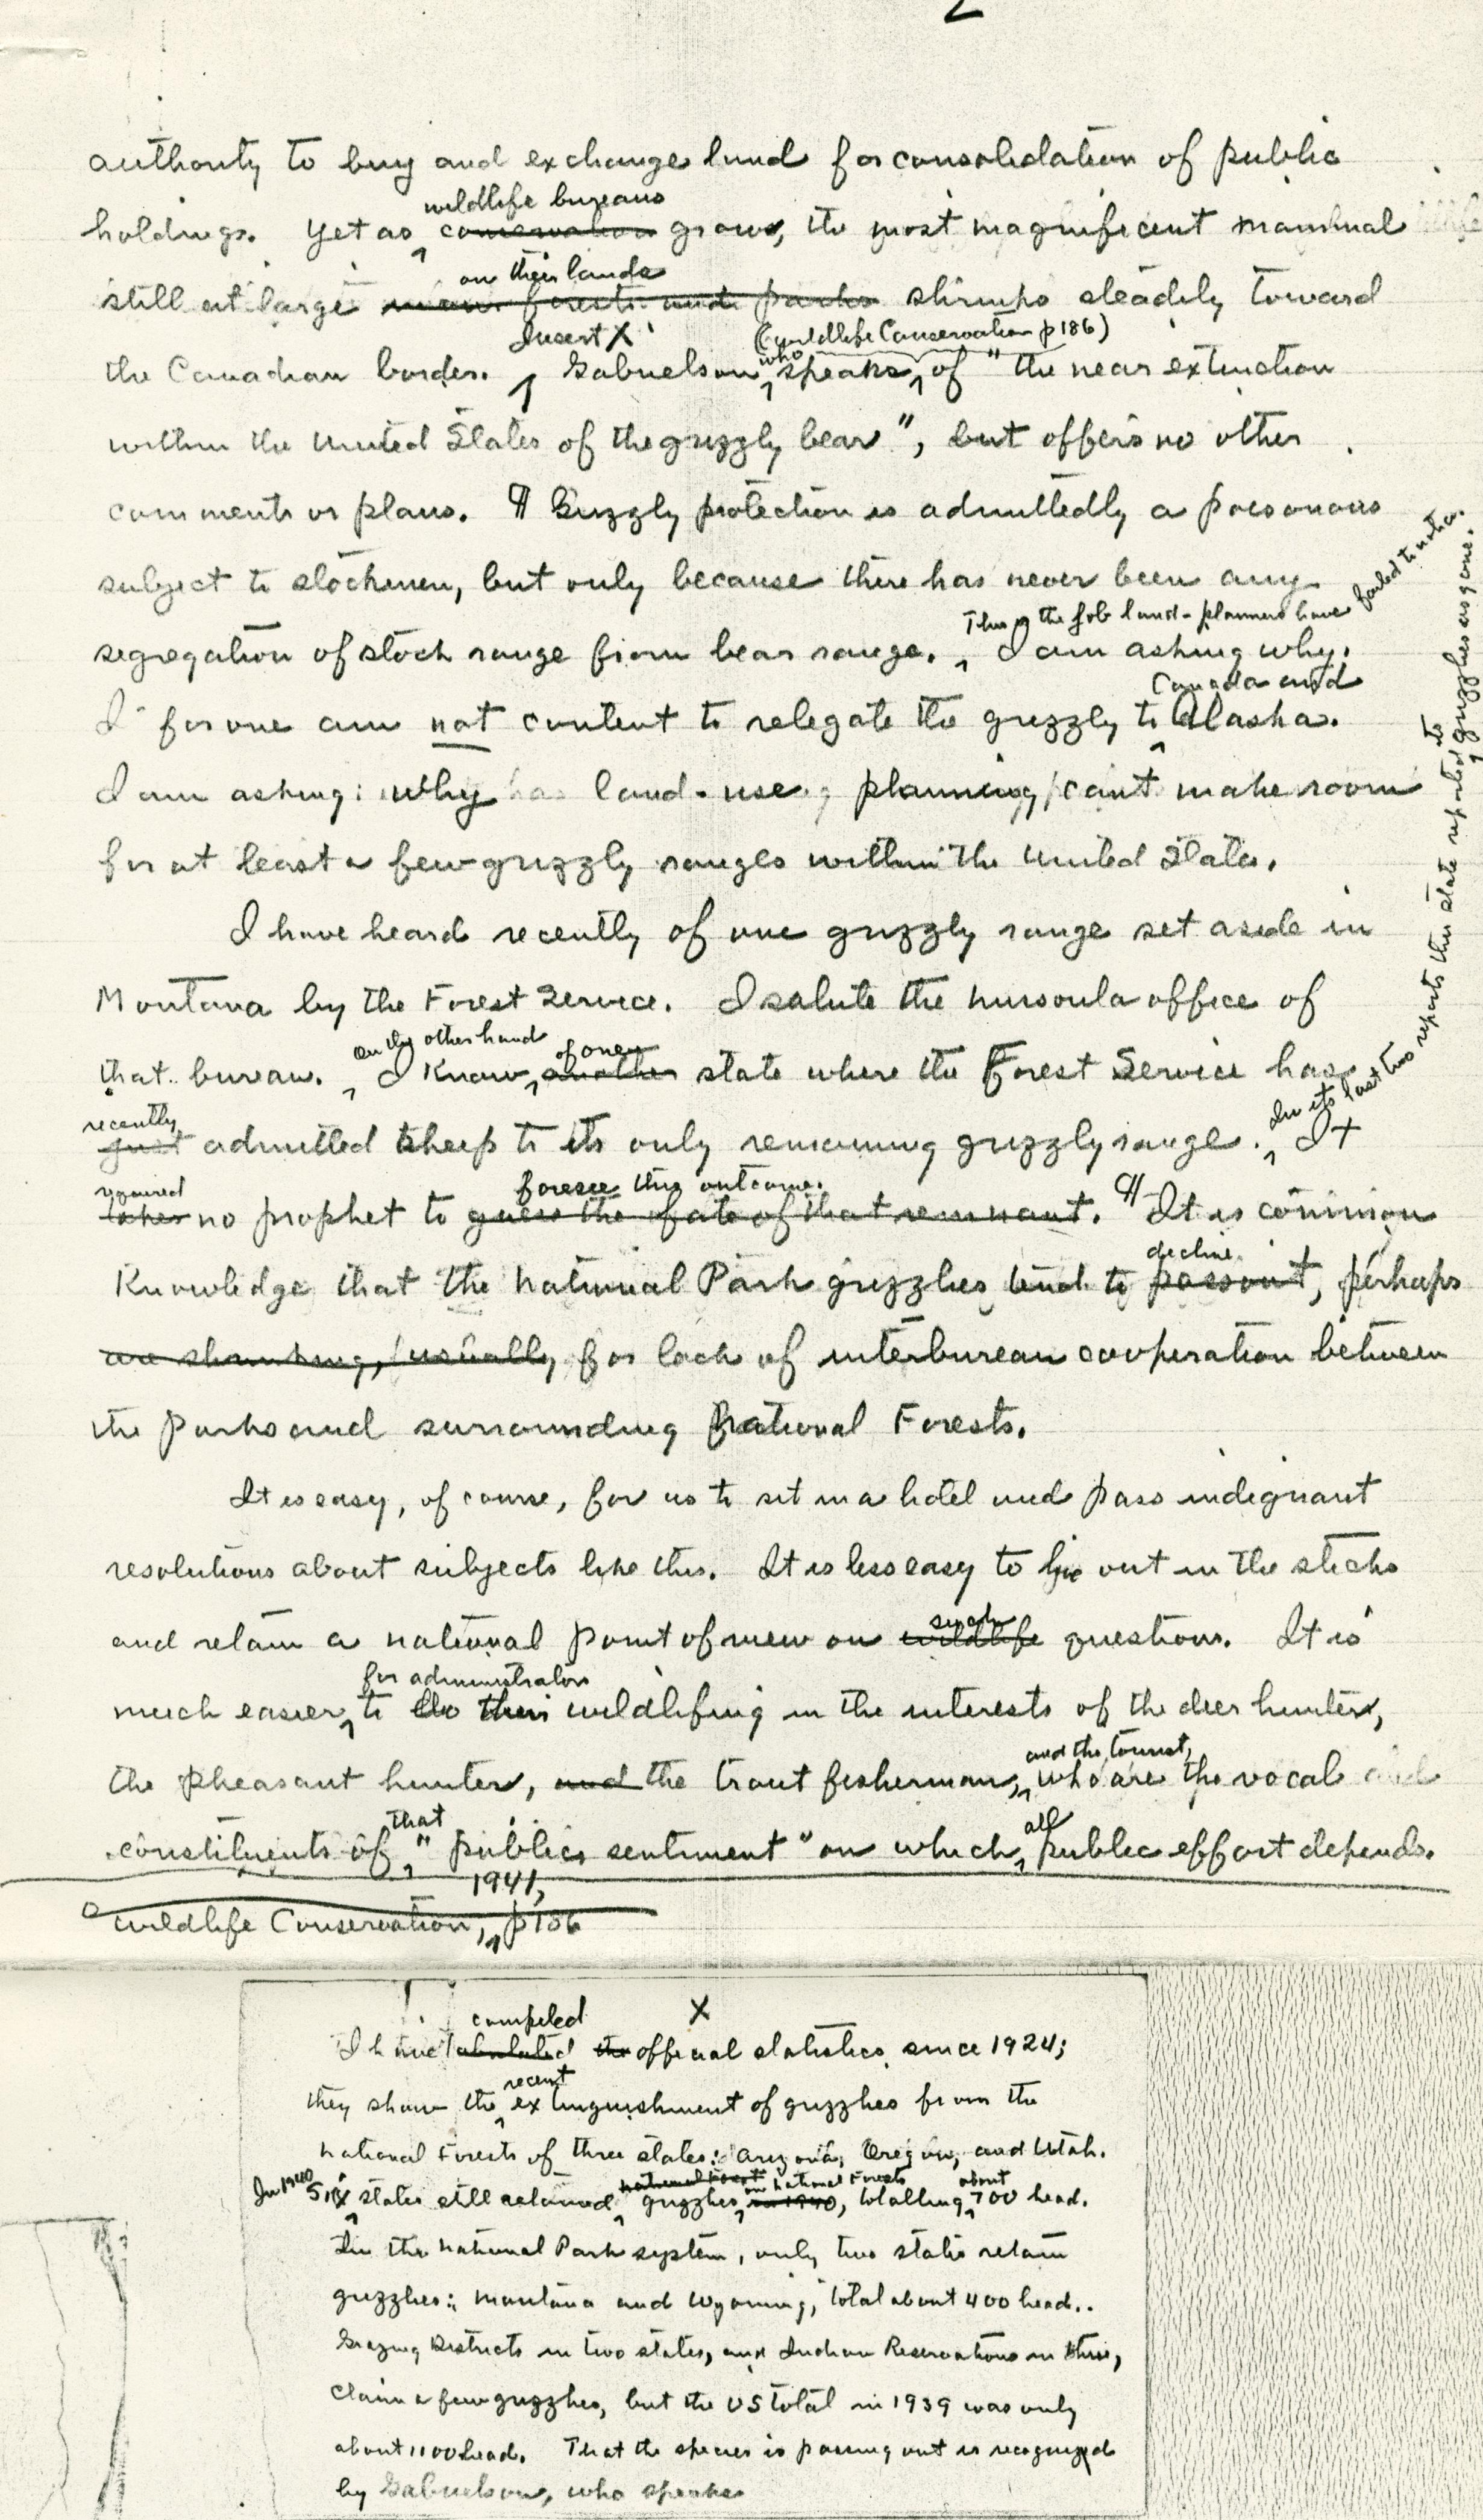 2
authority to buy and exchange land for consolidation of public
wildlife bureaus
holdings. Yet as conservation grows, the most magnificent mammal
on their lands
still at large in our forests and parks shrinks steadily toward
Insert X (Wildlife Conservation p 186)
the Canadian border. Gabrielson who speaks of "the near extinction
within the United States of the grizzly bear", but offers no other
comments or plans. ¶ Grizzly protection is admittedly a poisonous
subject to stockmen, but only because there has never been any
This is the job land-planners have failed to notice.
segregation of stock range from bear range. I am asking why.
Canada and
I for one am not content to relegate the grizzly to Alaska.
I am asking: why has land-use planning can't make room
for at least a few grizzly ranges within the United States.
I have heard recently of one grizzly range set aside in
Montana by the Forest Service. I salute the Missoula office of
on the other hand of one
that bureau. I know another state where the Forest Service has
recently In its last two reports this state reported its grizzlies as gone.
just admitted sheep to its only remaining grizzly range. It
required foresee this outcome.
takes no prophet to guess the fate of that remnant. ¶ It is common
decline
Knowledge that the National Park grizzlies tend to pass out, perhaps
are shrinking, usually for lack of interbureau cooperation between
the Parks and surrounding National Forests.
It is easy, of course, for us to sit in a hotel and pass indignant
resolutions about subjects like this. It is less easy to live out in the sticks
such
and retain a national point of view on wildlife questions. It is
for administrators
much easier to do their wildlifing in the interests of the deer hunter,
and the tourist,
the pheasant hunter, and the trout fisherman, who are the vocal
that all
constituents of "public sentiment" on which public effort depends.
1941,
Wildlife Conservation, p 186
X
compiled
I have tabulated the official statistics since 1924;
recent
they show the extinguishment of grizzlies from the
National Forests of three states: Arizona, Oregon, and Utah.
In 1940 national forest on National Forests about
Six states still retained grizzlies in 1940, totalling 700 head.
In the National Park system, only two states retain
grizzlies: Montana and Wyoming, total about 400 head.
Grazing Districts in two states, and Indian Reservations in three,
claim a few grizzlies, but the US total in 1939 was only
about 1100 head. That the species is passing out is recognized
by Gabrielson, who speaks